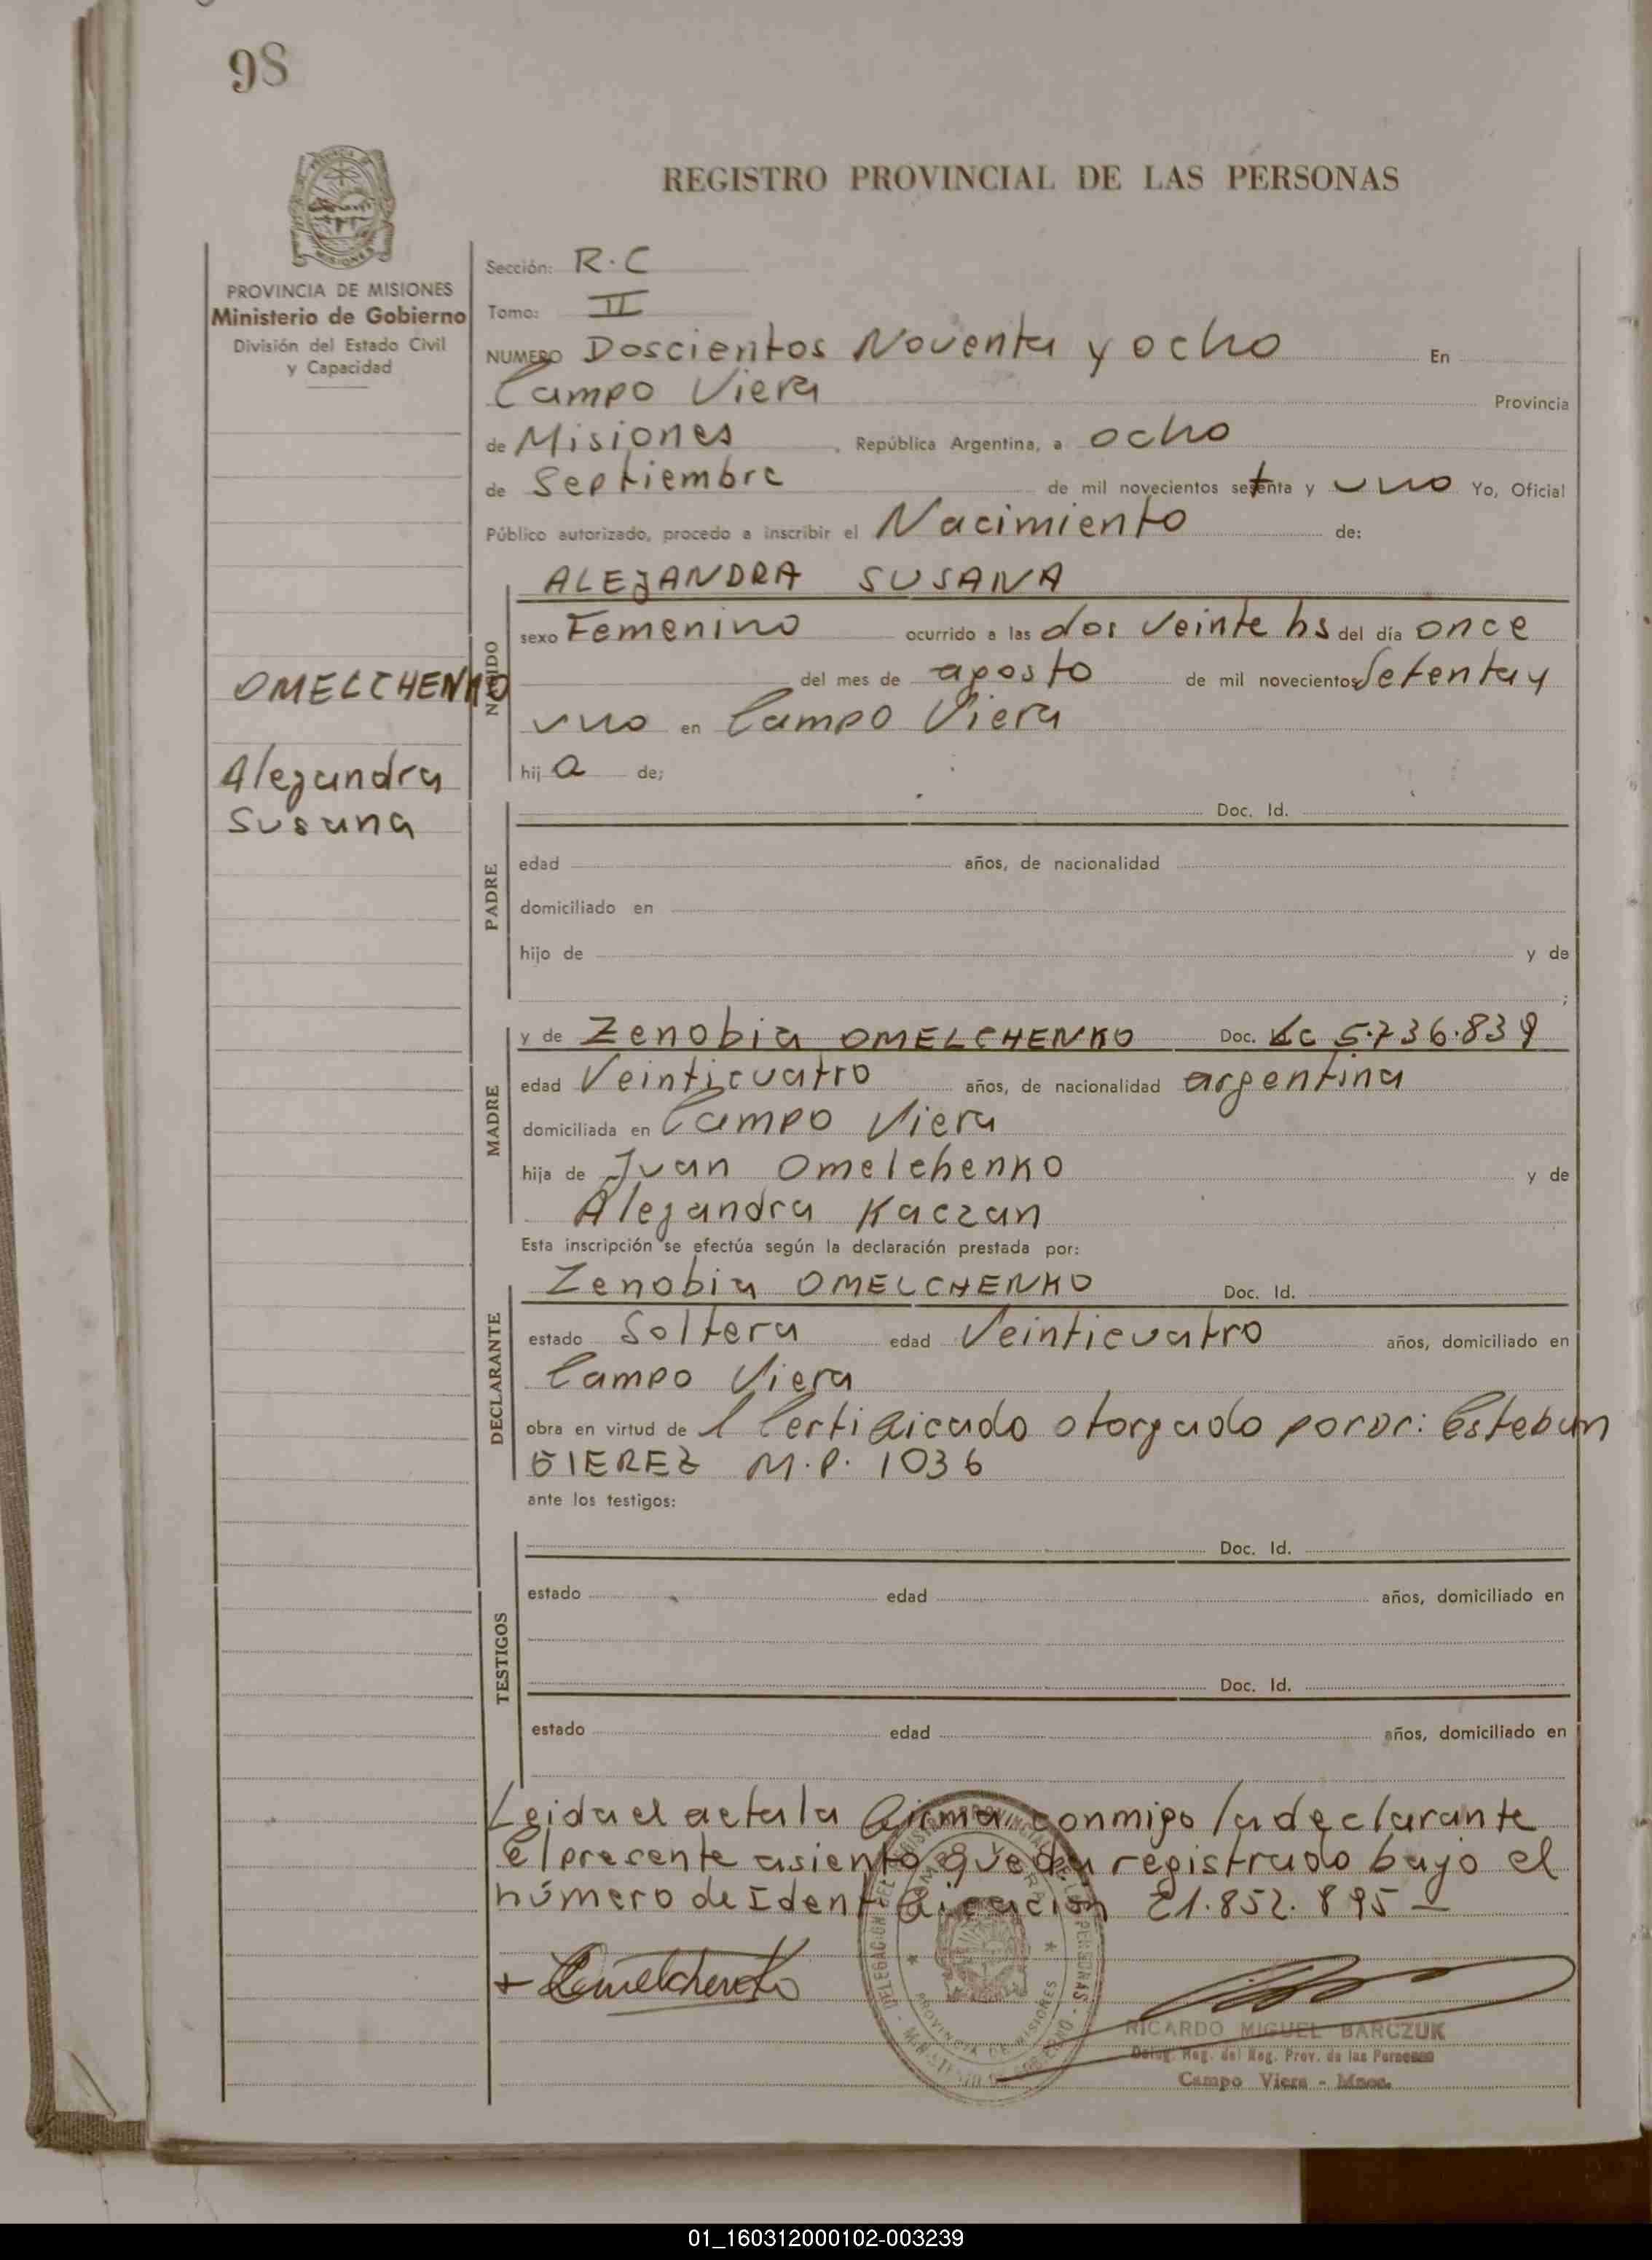 98
REGISTRO PROVINCIAL DE LAS PERSONAS
PROVINCIA DE MISIONES
Ministerio de Gobierno
División del Estado Civil
y Capacidad
OMELCHENKO
Alejandra
Susana
Sección: R.C
Tomo: II
NUMERO Doscientos Noventa y ocho En
Campo Viera Provincia
de Misiones, República Argentina, a ocho
de Septiembre de mil novecientos setenta y uno Yo, Oficial
Público autorizado, procedo a inscribir el Nacimiento de:
NACIDO
ALEJANDRA SUSANA
sexo Femenino ocurrido a las dos veinte hs del día once
del mes de agosto de mil novecientos Setenta y
uno en Campo Viera
hij a de;
PADRE
Doc. Id.
edad años, de nacionalidad
domiciliado en
hijo de y de
;
MADRE
y de Zenobia OMELCHENKO Doc. Lc 5.736.839
edad Veinticuatro años, de nacionalidad argentina
domiciliada en Campo Viera
hija de Juan Omelchenko y de
Alejandra Kaczan
Esta inscripción se efectúa según la declaración prestada por:
DECLARANTE
Zenobia OMELCHENKO Doc. Id.
estado Soltera edad Veinticuatro años, domiciliado en
Campo Viera
obra en virtud de l Certificado otorgado por Dr: Esteban
GIEREZ M.P. 1036
ante los testigos:
TESTIGOS
Doc. Id.
estado edad años, domiciliado en
Doc. Id.
estado edad años, domiciliado en
Leida el acta la firma conmigo la declarante
el presente asiento queda registrado bajo el
número de Identificación 21.852.895
Omelchenko
RICARDO MIGUEL BARCZUK
Deleg. Reg. del Reg. Prov. de las Personas
Campo Viera - Mnes.
01_160312000102-003239